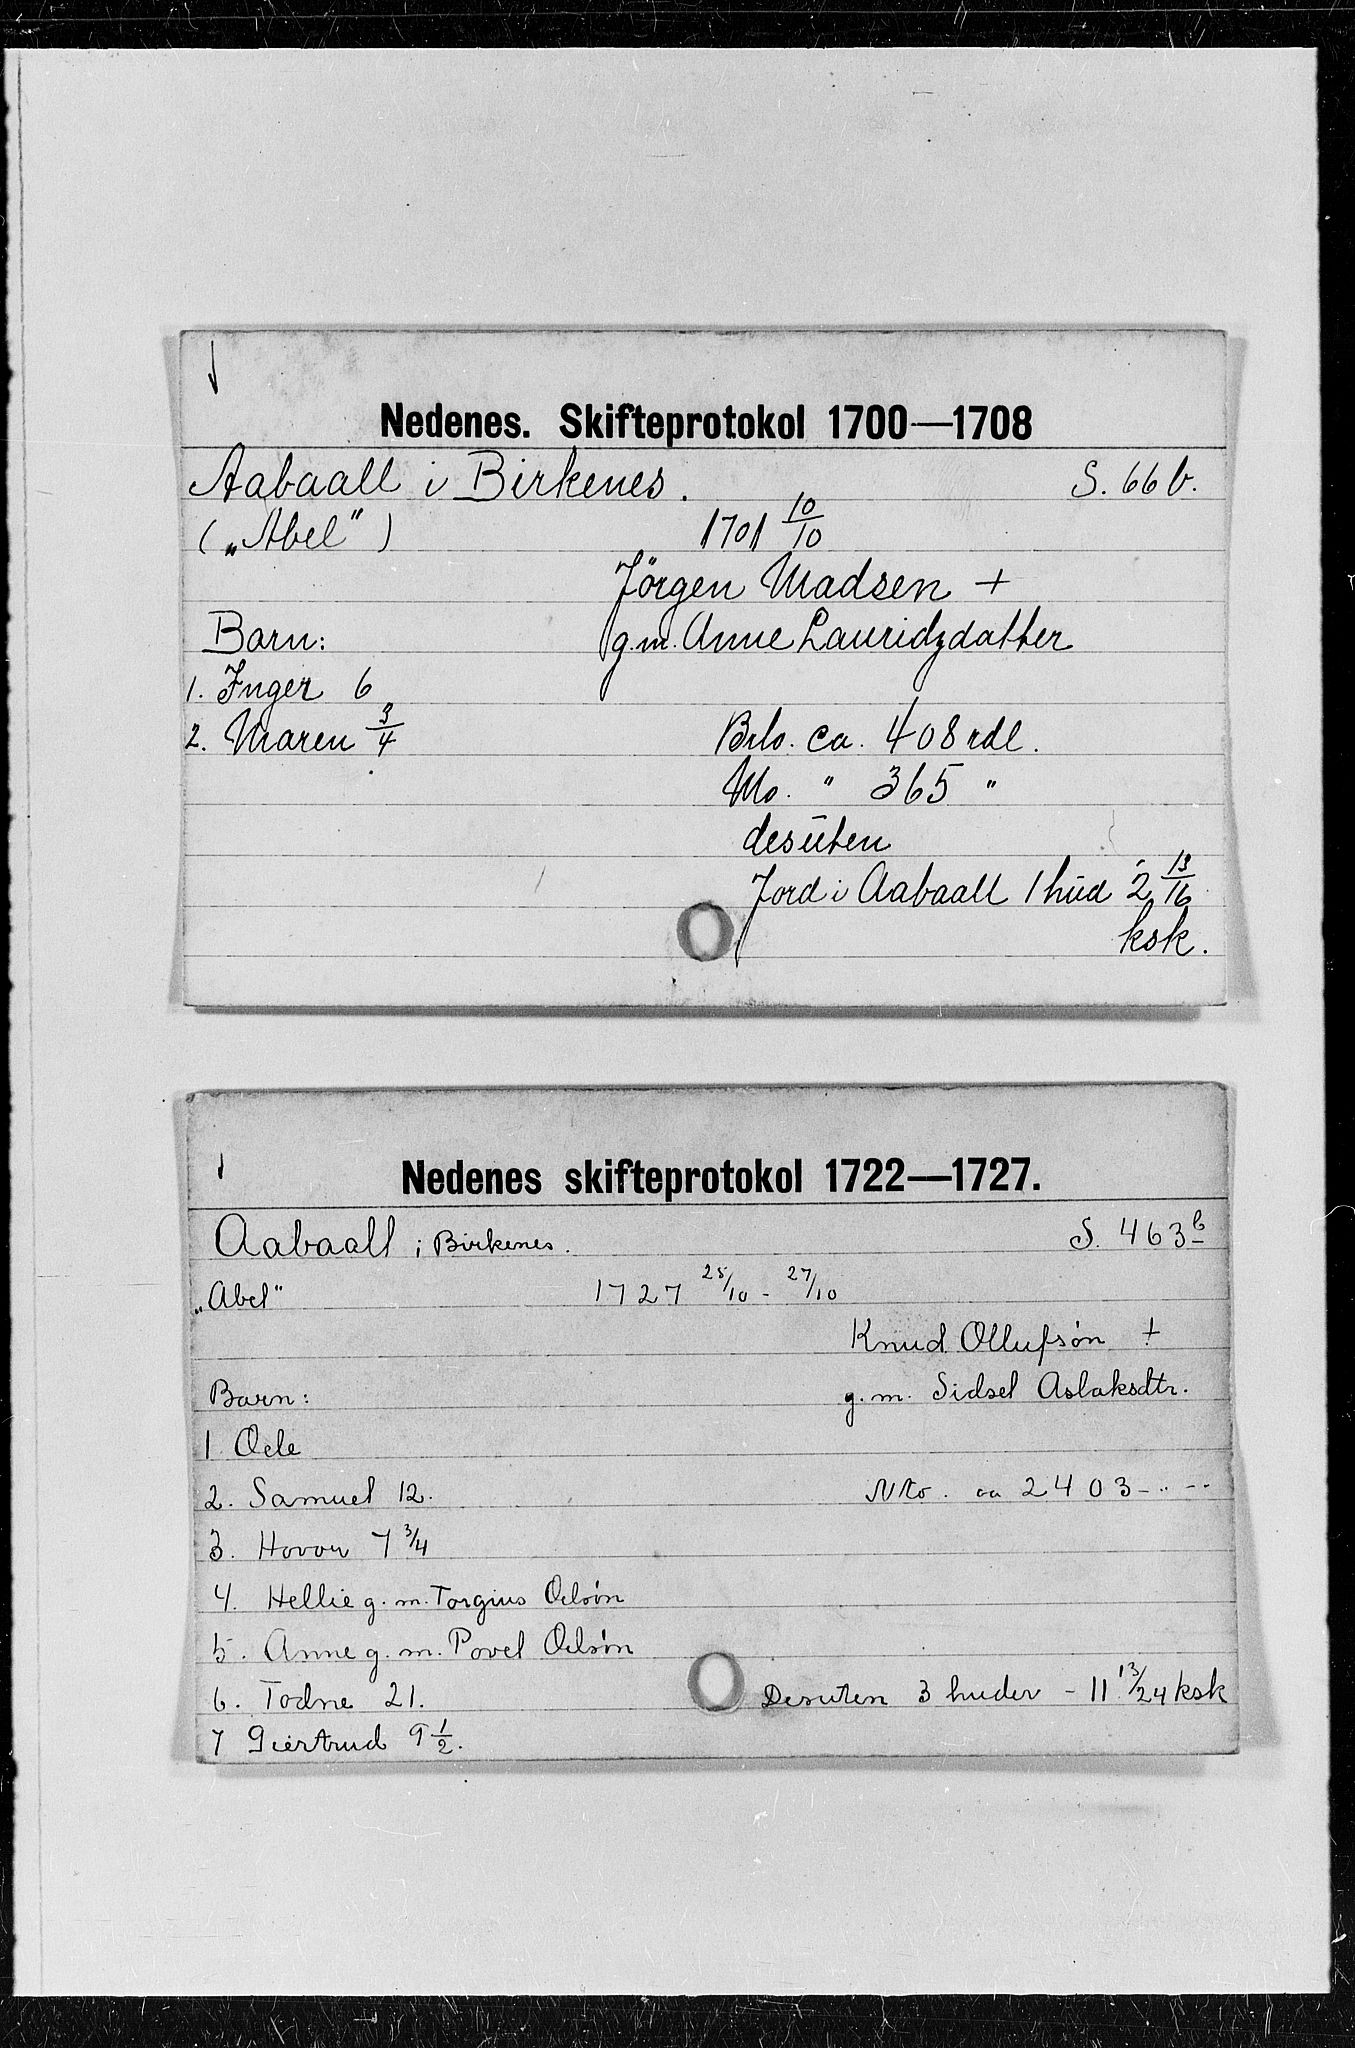 Nedenes. Skifteprotokol 1700—1708
Aabaall i Birkenes. S. 66 b.
(„Abel") 1701 10/10
Jörgen Madsen +
Barn: g.m. Anne Lauridzdatter
1. Inger 6
2. Maren 3/4 Brto. ca. 408 rdl.
Nto. " 365 "
desuten
Jord i Aabaall 1 hud 2 13/16
ksk.
Nedenes skifteprotokol 1722—1727.
Aabaall i Birkenes. S. 463 b
„Abel" 1727 25/10 - 27/10
Knud Ollufsøn +
Barn: g.m. Sidsel Aslaksdtr.
1 Oele
2. Samuel 12. Nto. ca 2403-..--
3. Hovor 7 3/4
4. Hellie g. m. Torgius Oelsøn
5. Anne g. m. Povel Oelsøn
6. Todne 21. Desuten 3 huder - 11 13/24 ksk
7 Giertrud 9 1/2.